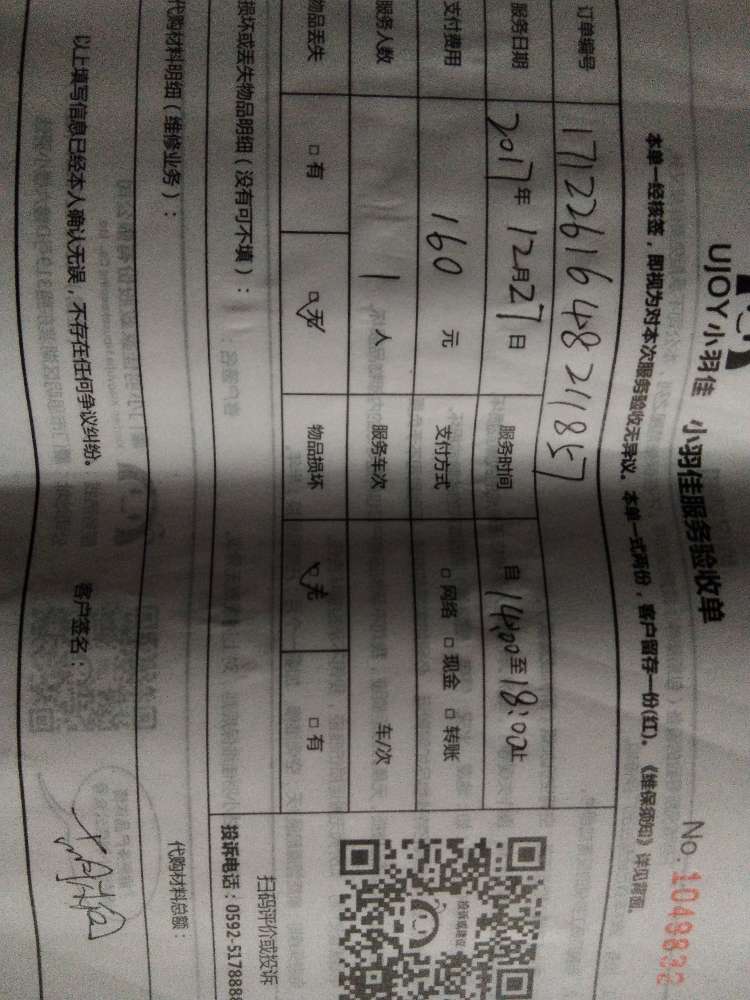 UJOY小羽佳 小羽佳服务验收单 No.1048832
本单一经核签，即视为对本次服务验收无异议。本单一式两份，客户留存一份(红)。《维保须知》详见背面。
订单编号 1712261648211857
服务日期 2017年12月27日 服务时间 自14:00至18:00止
支付费用 160元 支付方式 □网络 □现金 □转账
服务人数 1人 服务车次 车/次
物品丢失 □有 □无 物品损坏 □无 □有
损坏或丢失物品明细（没有可不填）：
扫码评价或投诉
投诉电话：0592-5178888
代购材料明细（维修业务）： 代购材料总额：
以上填写信息已经本人确认无误，不存在任何争议纠纷。 客户签名：
投诉或建议